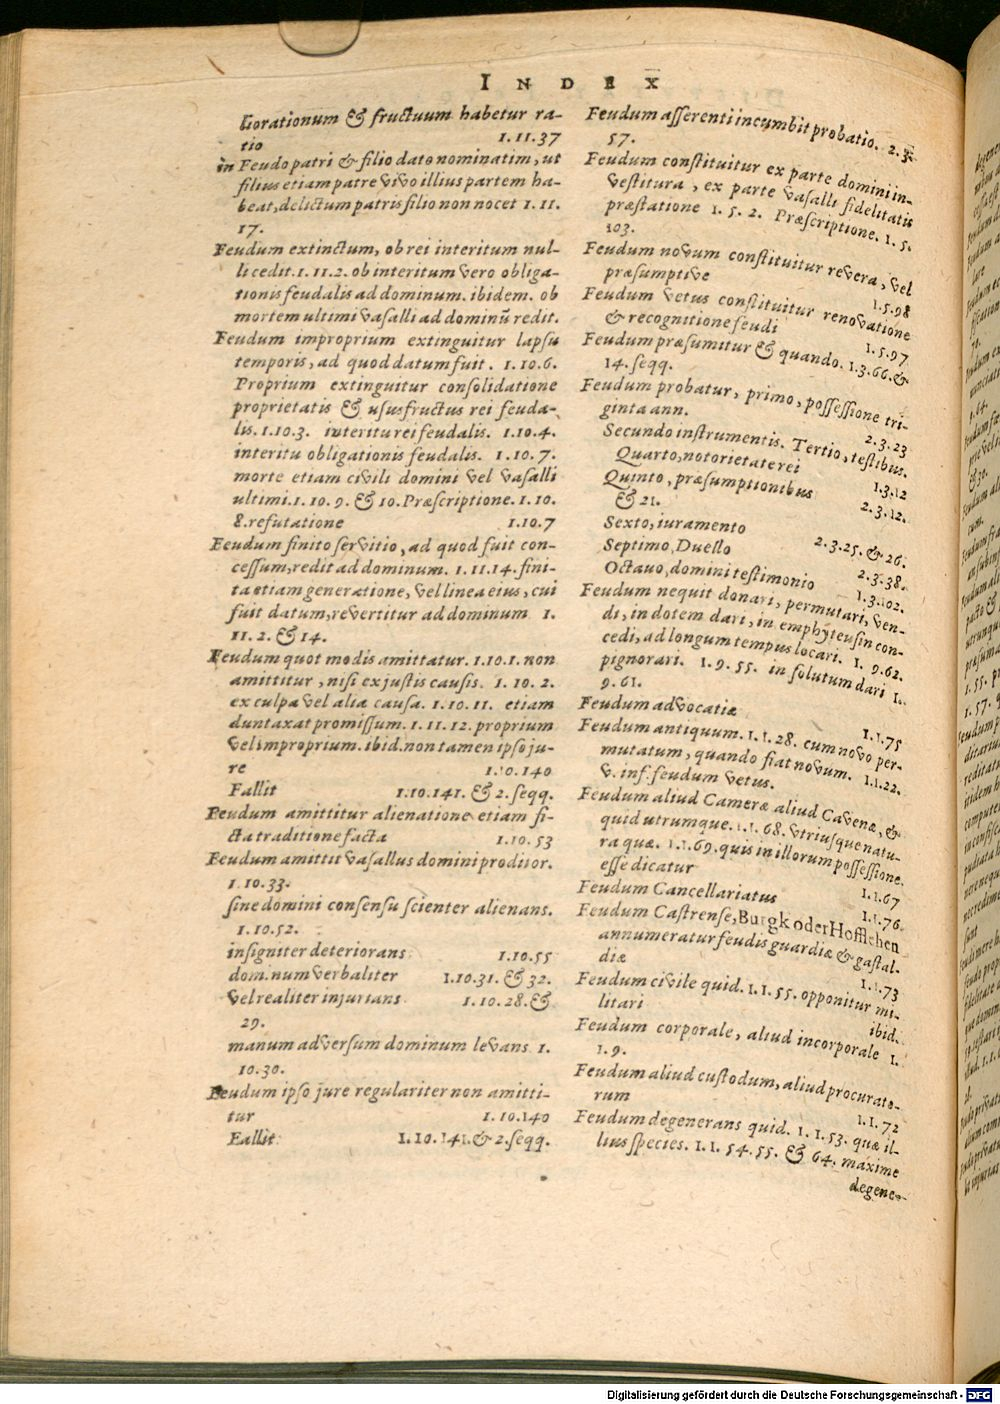 INDEX
liorationum & fructuum habetur ra-
tio 1.11.37
in Feudo patri & filio dato nominatim, ut
filius etiam patre vivo illius partem ha-
beat, delictum patris filio non nocet 1. 11.
17.
Feudum extinctum, ob rei interitum nul-
li cedit. 1. 11. 2. ob interitum vero obliga-
tionis feudalis ad dominum. ibidem. ob
mortem ultimi vasalli ad dominũ redit.
Feudum improprium extinguitur lapsu
temporis, ad quod datum fuit. 1. 10. 6.
Proprium extinguitur consolidatione
proprietatis & ususfructus rei feuda-
lis. 1. 10. 3. interitu rei feudalis. 1. 10. 4.
interitu obligationis feudalis. 1. 10. 7.
morte etiam civili domini vel vasalli
ultimi. 1. 10. 9. & 10. Præscriptione. 1. 10.
8. refutatione 1. 10. 7
Feudum finito servitio, ad quod fuit con-
cessum, redit ad dominum. 1. 11. 14. fini-
ta etiam generatione, vel linea eius, cui
fuit datum, revertitur ad dominum 1.
11. 2. & 14.
Feudum quot modis amittatur. 1. 10. 1. non
amittitur, nisi ex justis causis. 1. 10. 2.
ex culpa vel alia causa. 1. 10. 11. etiam
duntaxat promissum. 1. 11. 12. proprium
vel improprium. ibid. non tamen ipso ju-
re 1. 10. 140
Fallit 1. 10. 141. & 2. seqq.
Feudum amittitur alienatione etiam fi-
cta traditione facta 1. 10. 53
Feudum amittit vasallus domini proditor.
1. 10. 33.
sine domini consensu scienter alienans.
1. 10. 52.
insigniter deteriorans 1. 10. 55
dominum verbaliter 1. 10. 31. & 32.
vel realiter injurians 1. 10. 28. &
29.
manum adversum dominum levans 1.
10. 30.
Feudum ipso jure regulariter non amitti-
tur 1. 10. 140
Fallit 1. 10. 141. & 2. seqq.
Feudum asserenti incumbit probatio. 2. 3.
57.
Feudum constituitur ex parte domini in-
vestitura, ex parte vasalli fidelitatis
præstatione 1. 5. 2. Præscriptione. 1. 5.
103.
Feudum novum constituitur revera, vel
præsumptive 1. 5. 98
Feudum vetus constituitur renovatione
& recognitione feudi 1. 5. 97
Feudum præsumitur & quando. 1. 3. 66. &
14. seqq.
Feudum probatur, primo, possessione tri-
ginta ann. 2. 3. 23
Secundo instrumentis. Tertio, testibus.
Quarto, notorietate rei 1. 3. 12
Quinto, præsumptionibus 2. 3. 12.
& 21.
Sexto, iuramento 2. 3. 25. & 26.
Septimo, Duello 2. 3. 38.
Octavo, domini testimonio 1. 3. 102.
Feudum nequit donari, permutari, ven-
di, in dotem dari, in emphyteusin con-
cedi, ad longum tempus locari. 1. 9. 62.
pignorari. 1. 9. 55. in solutum dari 1.
9. 61.
Feudum advocatiæ 1. 1. 75
Feudum antiquum. 1. 1. 28. cum novo per-
mutatum, quando fiat novum. 1. 1. 22.
v. inf. feudum vetus.
Feudum aliud Cameræ aliud Cavenæ, &
quid utrumque. 1. 1. 68. utriusque natu-
ra quæ. 1. 1. 69. quis in illorum possessione.
esse dicatur 1. 1. 67
Feudum Cancellariatus 1. 1. 76
Feudum Castrense, Burgk oder Hofflehen
annumeratur feudis guardiæ & gastal-
diæ 1. 1. 73
Feudum civile quid. 1. 1. 55. opponitur mi-
litari ibid.
Feudum corporale, aliud incorporale 1.
1. 9.
Feudum aliud custodum, aliud procurato-
rum 1. 1. 72
Feudum degenerans quid. 1. 1. 53. quæ il-
lius species. 1. 1. 54. 55. & 64. maxime
degene-
Digitalisierung gefördert durch die Deutsche Forschungsgemeinschaft - DFG